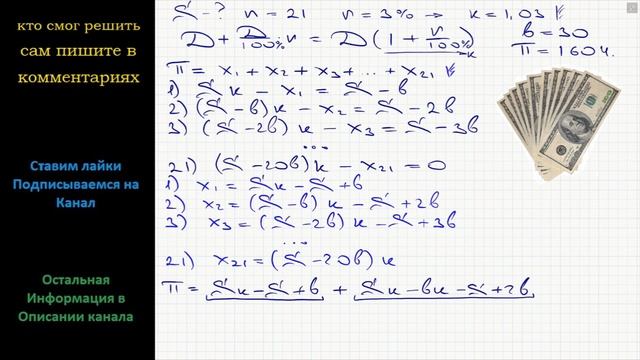 кто смог решить
сам пишите в
комментариях
Ставим лайки
Подписываемся на
Канал
Остальная
Информация в
Описании канала
S - ? n = 21 r = 3% → k = 1,03
b = 30
D + D/100% · r = D(1 + r/100%)
k
П = 1604.
П = x₁ + x₂ + x₃ + ... + x₂₁
1) Sк - x₁ = S - b
2) (S - b)к - x₂ = S - 2b
3) (S - 2b)к - x₃ = S - 3b
...
21) (S - 20b)к - x₂₁ = 0
1) x₁ = Sк - S + b
2) x₂ = (S - b)к - S + 2b
3) x₃ = (S - 2b)к - S + 3b
...
21) x₂₁ = (S - 20b)к
П = Sк - S + b + Sк - bк - S + 2b